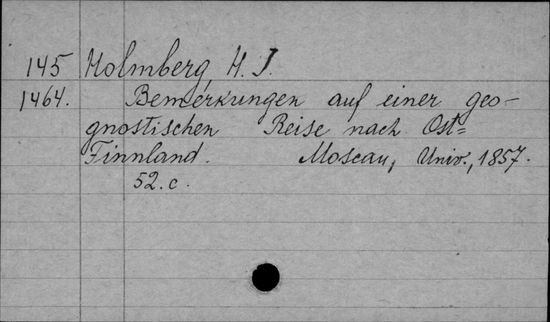 145 Holmberg, H. J.
1464. Bemerkungen auf einer geo-
gnostischen Reise nach Ost=
Finnland. Moscau, Univ., 1857.
52. c.